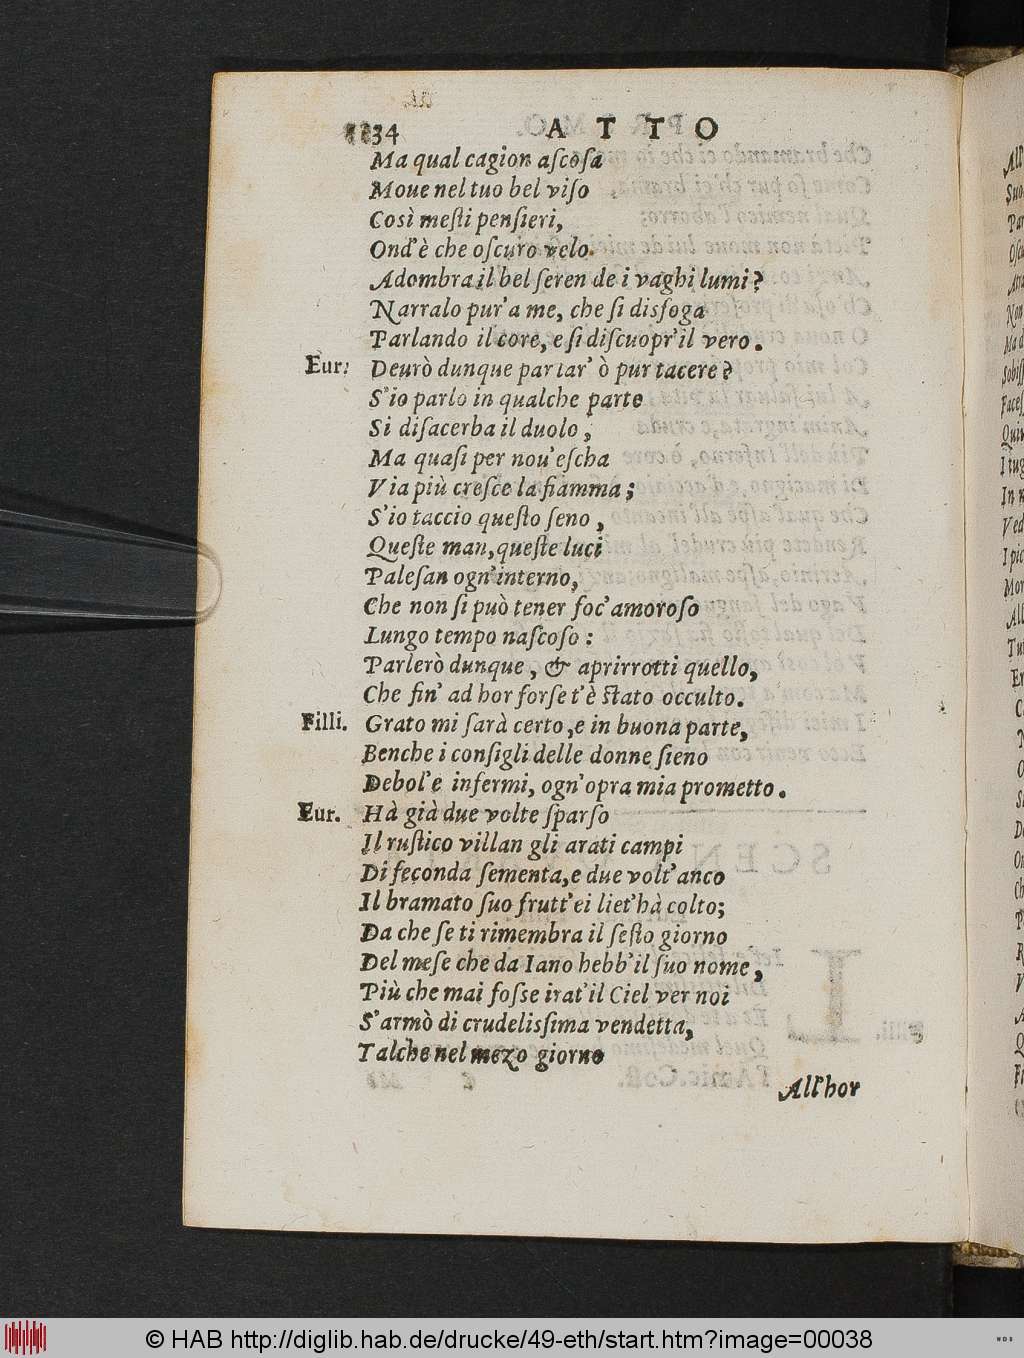 34 ATTO
Ma qual cagion aſcoſa
Moue nel tuo bel viſo
Così meſti penſieri,
Ond'è che oſcuro velo
Adombra il bel ſeren de i vaghi lumi?
Narralo pur'a me, che ſi disfoga
Parlando il core, e ſi diſcuopr'il vero.
Eur. Deurò dunque parlar' ò pur tacere?
S'io parlo in qualche parte
Si diſacerba il duolo,
Ma quaſi per nou'eſcha
Via più creſce la fiamma;
S'io taccio queſto ſeno,
Queſte man, queſte luci
Paleſan ogn'interno,
Che non ſi può tener foc'amoroſo
Lungo tempo naſcoſo:
Parlerò dunque, & aprirrotti quello,
Che fin' ad hor forſe t'è ſtato occulto.
Filli. Grato mi ſarà certo, e in buona parte,
Benche i conſigli delle donne ſieno
Debol'e infermi, ogn'opra mia prometto.
Eur. Hà già due volte ſparſo
Il ruſtico villan gli arati campi
Di feconda ſementa, e due volt'anco
Il bramato ſuo frutt'ei liet'hà colto;
Da che ſe ti rimembra il ſeſto giorno
Del meſe che da Iano hebb'il ſuo nome,
Più che mai foſſe irat'il Ciel ver noi
S'armò di crudeliſſima vendetta,
Talche nel mezo giorno
All'hor
© HAB http://diglib.hab.de/drucke/49-eth/start.htm?image=00038